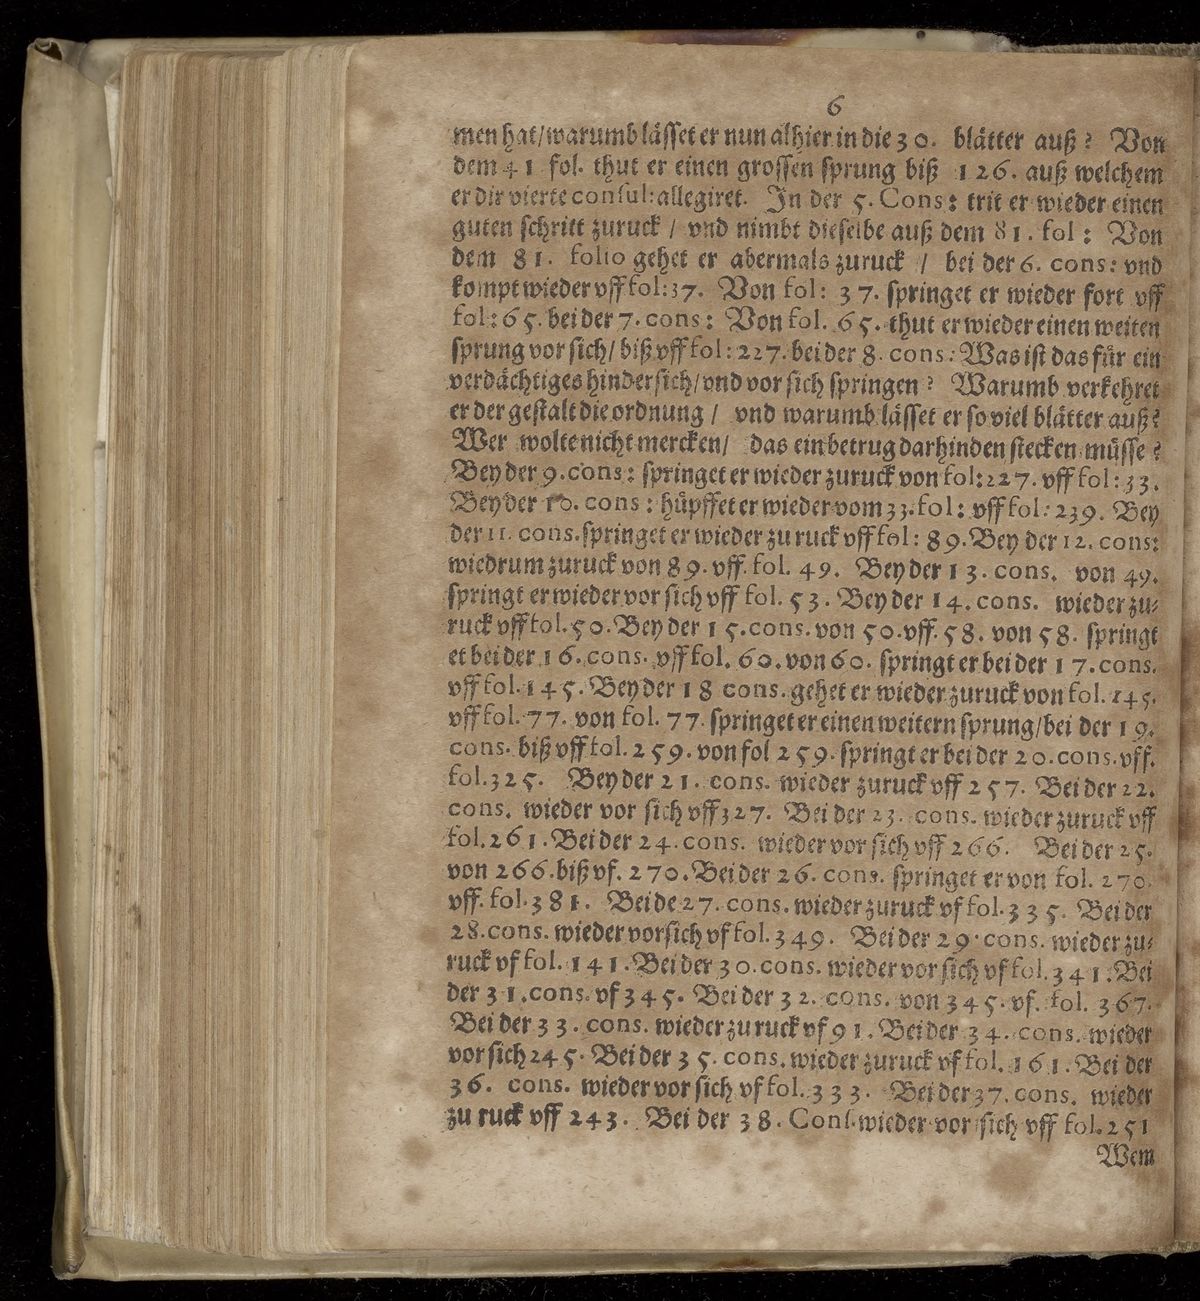 6
men hat/warumb lässet er nun alhier in die 30. blätter auß? Von
dem 41 fol. thut er einen grossen sprung biß 126. auß welchem
er dir vierte consul: allegiret. In der 5. Cons: trit er wieder einen
guten schritt zuruck / vnd nimbt dieselbe auß dem 81. fol: Von
dem 81. folio gehet er abermals zuruck / bei der 6. cons: vnd
kompt wieder vff fol: 37. Von fol: 37. springet er wieder fort vff
fol: 65. bei der 7. cons: Von fol. 65. thut er wieder einen weiten
sprung vor sich/ biß vff fol: 227. bei der 8. cons: Was ist das für ein
verdächtiges hinder sich/vnd vor sich springen? Warumb verkehret
er der gestalt die ordnung / vnd warumb lässet er so viel blätter auß?
Wer wolte nicht mercken/ das ein betrug darhinden stecken müsse?
Bey der 9. cons: springet er wieder zuruck von fol: 227. vff fol: 33.
Bey der 10. cons: hüpffet er wieder vom 33. fol: vff fol: 239. Bey
der 11. cons. springet er wieder zu ruck vff fol: 89. Bey der 12. cons:
wiedrum zuruck von 89. vff. fol. 49. Bey der 13. cons. von 49.
springt er wieder vor sich vff fol. 53. Bey der 14. cons. wieder zu-
ruck vff fol. 50. Bey der 15. cons. von 50. vff. 58. von 58. springt
et bei der 16. cons. vff fol. 60. von 60. springt er bei der 17. cons.
vff fol. 145. Bey der 18 cons. gehet er wieder zuruck von fol. 145.
vff fol. 77. von fol. 77. springet er einen weitern sprung/bei der 19.
cons. biß vff fol. 259. von fol 259. springt er bei der 20. cons. vff.
fol. 325. Bey der 21. cons. wieder zuruck vff 257. Bei der 22.
cons. wieder vor sich vff 327. Bei der 23. cons. wieder zuruck vff
fol. 261. Bei der 24. cons. wieder vor sich vff 266. Bei der 25.
von 266. biß vf. 270. Bei der 26. cons. springet er von fol. 270.
vff. fol. 381. Bei de 27. cons. wieder zuruck vf fol. 335. Bei der
28. cons. wieder vor sich vf fol. 349. Bei der 29. cons. wieder zu-
ruck vf fol. 141. Bei der 30. cons. wieder vor sich vf fol. 341. Bei
der 31. cons. vf 345. Bei der 32. cons. von 345. vf. fol. 367.
Bei der 33. cons. wieder zu ruck vf 91. Bei der 34. cons. wieder
vor sich 245. Bei der 35. cons. wieder zuruck vf fol. 161. Bei der
36. cons. wieder vor sich vf fol. 333. Bei der 37. cons. wieder
zu ruck vff 243. Bei der 38. Cons. wieder vor sich vff fol. 251
Wem